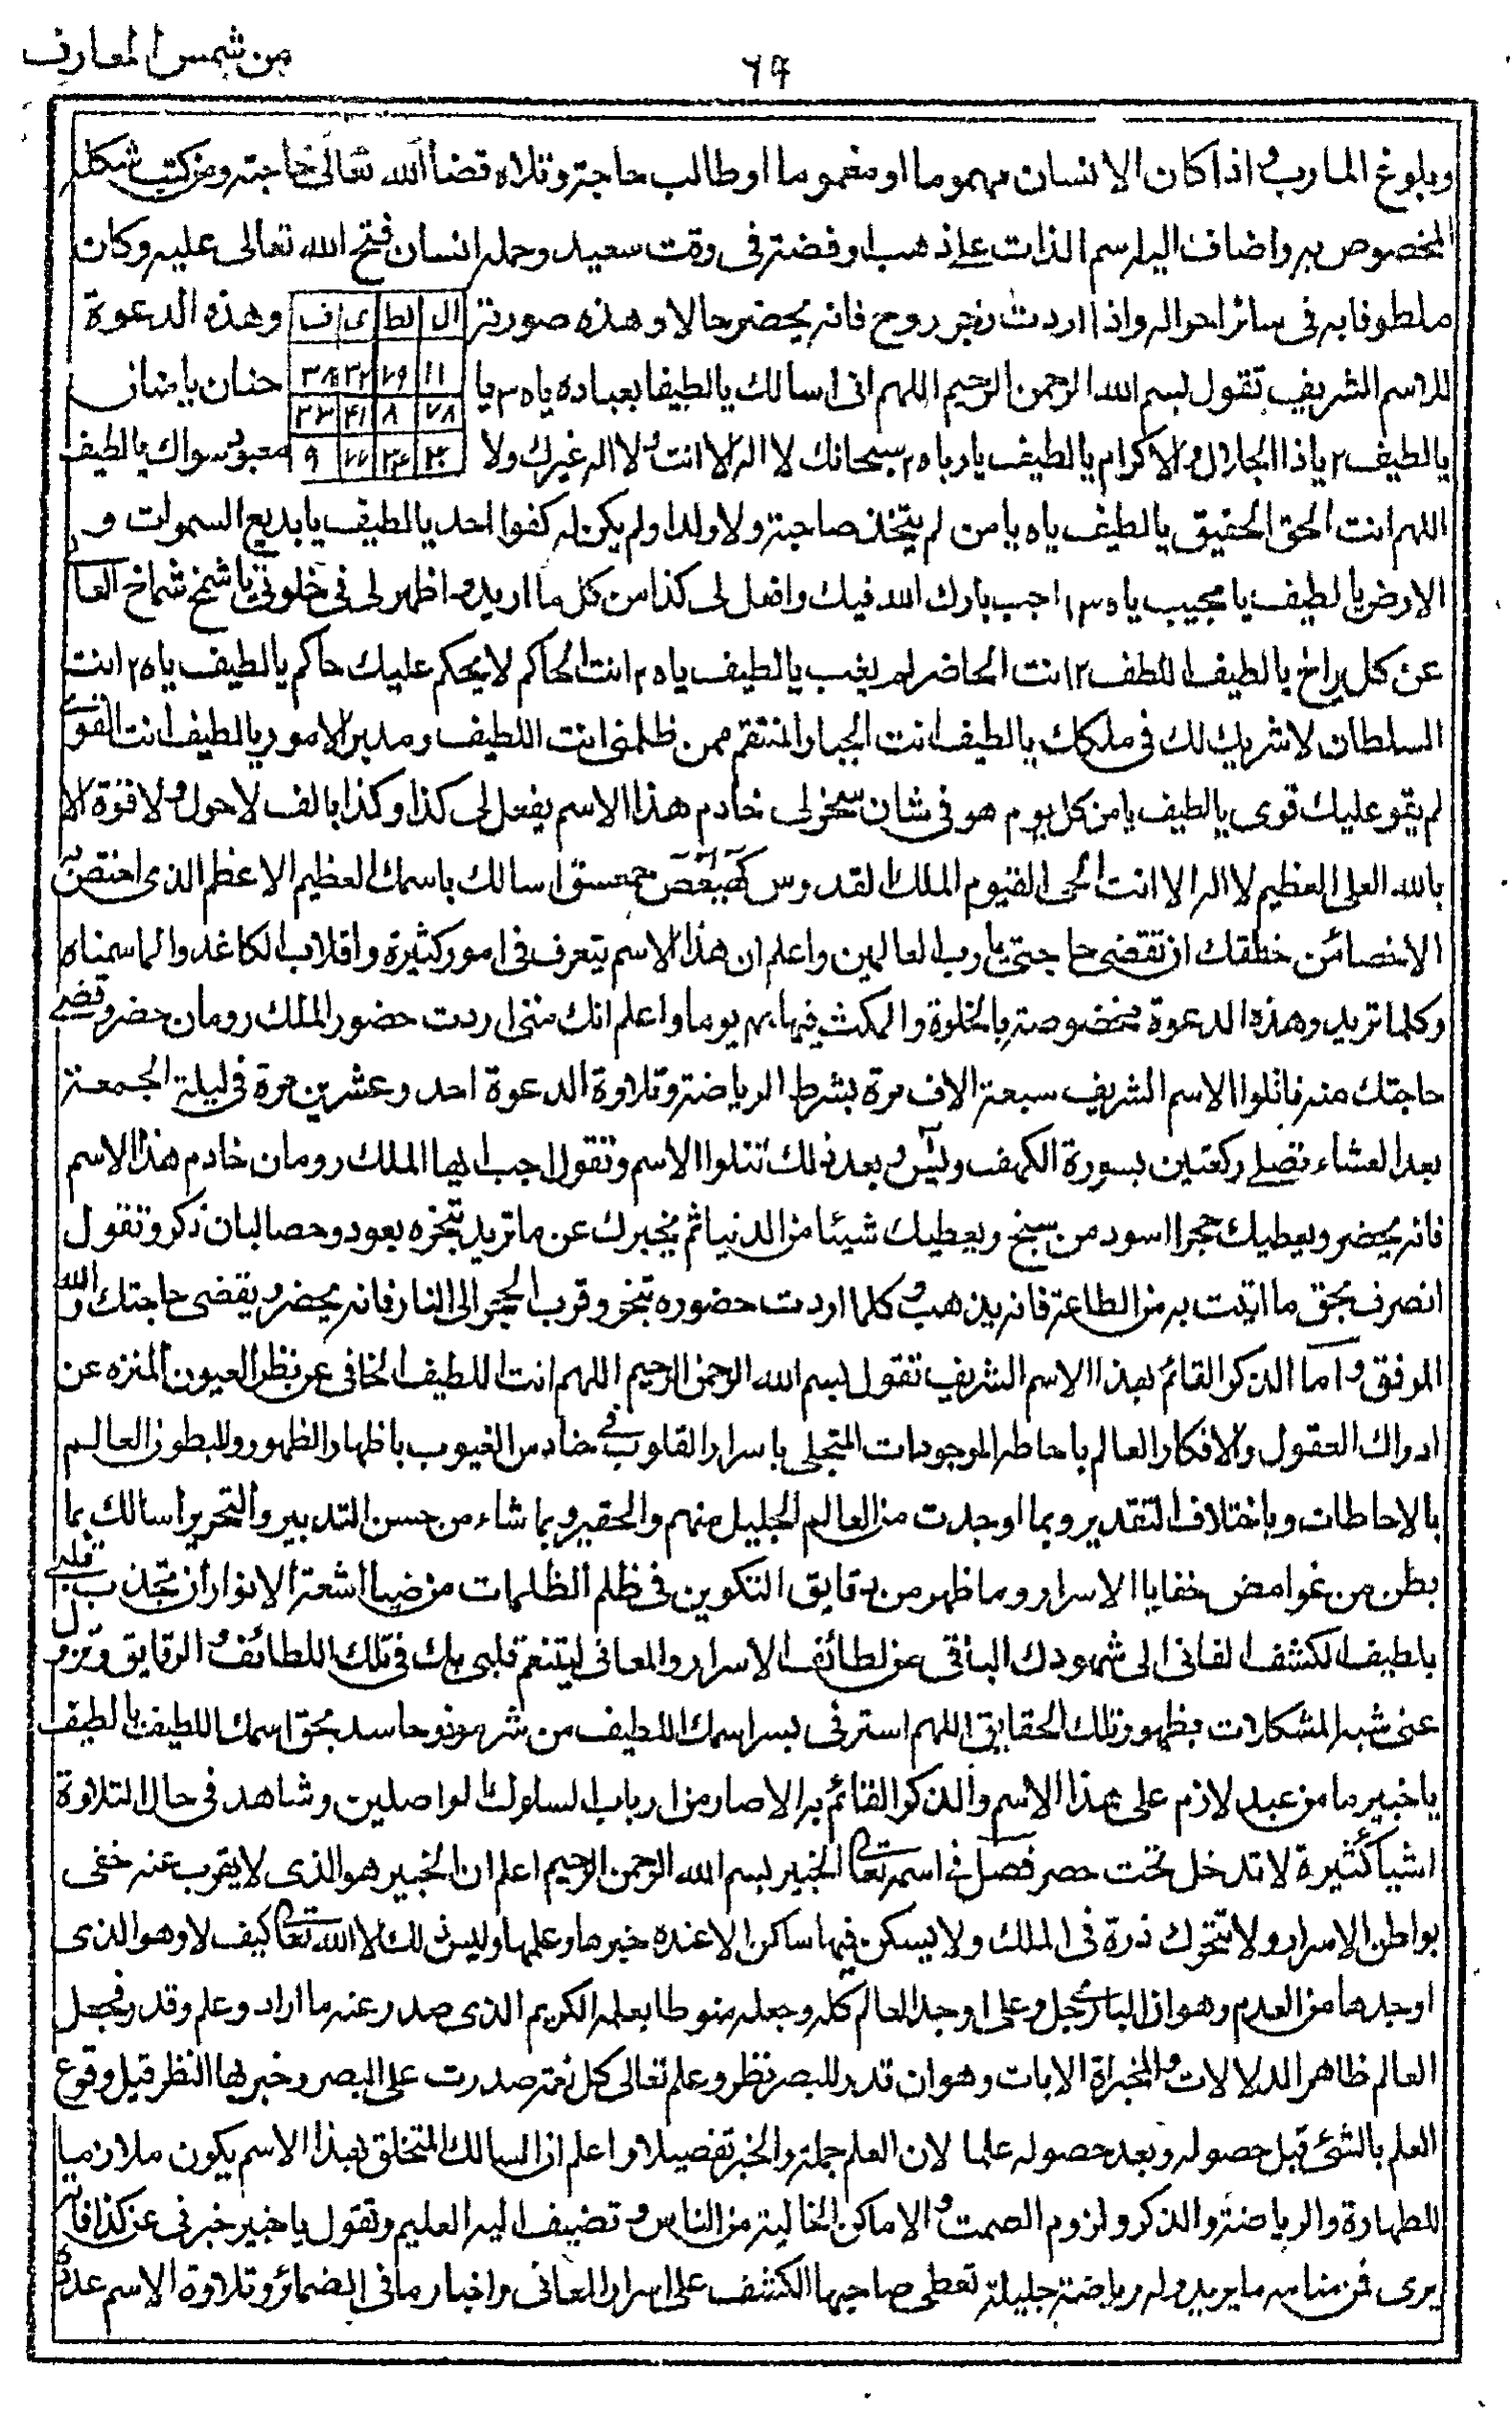 من شمس المعارف
٦٩
وبلوغ المارب و اذا كان الانسان مهموما او مغموما او طالب حاجة وتلاه قضا الله تعالى حاجته ومن كتب شكله
المخصوص به واضاف اليه اسم الذات على ذهب او فضة فى وقت سعيد وحمله انسان فتح الله تعالى عليه وكان
ملطوفا به فى سائر احواله واذا اردت زجر روح فانه يحضر حالا وهذه صورته وهذه الدعوة
ال لط ى ف
للاسم الشريف تقول بسم الله الرحمن الرحيم اللهم انى اسالك يا لطيفا بعباده ياه ٣ يا حنان يا منان
١١ ٧٩ ٣٢ ٣٨
٧٨ ٨ ٤١ ٣٣
يا لطيف ٢ يا ذا الجلال والاكرام يا لطيف يا رباه ٢ سبحانك لا اله الا انت ولا اله غيرك ولا معبود سواك يا لطيف
٩
اللهم انت الحق الحقيق يا لطيف ياه يا من لم يتخذ صاحبة ولا ولدا ولم يكن له كفوا احد يا لطيف يا بديع السموات و
الارض يا لطيف يا مجيب ياه ١٣ اجب بارك الله فيك وافعل لى كذا من كل ما اريد واظهر لى فى خلوتى يا شمخ شماخ العال
عن كل براخ يا لطيف اللطف ١٢ انت الحاضر لم يغب يا لطيف ياه ٢ انت الحاكم لا يحكم عليك حاكم يا لطيف ياه ٢ انت
السلطان لا شريك لك فى ملكك يا لطيف انت الجبار المنتقم ممن ظلمنى انت اللطيف ومدبر الامور يا لطيف انت القوى
لم يقو عليك قوى يا لطيف يا من كل يوم هو فى شان سخر لى خادم هذا الاسم يفعل لى كذا وكذا بالف لا حول ولا قوة الا
بالله العلى العظيم لا اله الا انت الحى القيوم الملك القدوس كهيعص حمعسق اسالك باسمك العظيم الاعظم الذى اختص به
من خلقك ان تقضى حاجتى يا رب العالمين واعلم ان هذا الاسم يتعرف فى امور كثيرة واقلاب الكاغد والماسمناه
وكلما تريد وهذه الدعوة مخصوصة بالخلوة والمكث فيها ٤٠ يوما واعلم انك متى اردت حضور الملك رومان حضر وقضى
حاجتك منه فاتلوا الاسم الشريف سبعة الاف مرة بشرط الرياضة وتلاوة الدعوة احد وعشرين مرة فى ليلة الجمعة
بعد العشاء تصلى ركعتين بسورة الكهف ويس وبعد ذلك تتلوا الاسم وتقول اجب ايها الملك رومان خادم هذا الاسم
فانه يحضر ويعطيك حجرا اسود من سبخ ويعطيك شيئا من الدنيا ثم يخبرك عن ما تريد تبخره بعود وحصالبان ذكر وتقول
انصرف بحق ما اتيت به من الطاعة فانه يذهب وكلما اردت حضوره تبخر وقرب الحجر الى النار فانه يحضر ويقضى حاجتك والله
الموفق واما الذكر القائم بهذا الاسم الشريف تقول بسم الله الرحمن الرحيم اللهم انت اللطيف الخافى عن نظر العيون المنزه عن
ادراك العقول والافكار العالم باحاطه الموجودات المتجلى باسرار القلوب فى حنادس الغيوب باظهار الظهور والبطون العالم
بالاحاطات وباختلاف التقدير وبما اوجدت من العالم الجليل منهم والحقير وبما شاء من حسن التدبير والتحرير اسالك بما
بطن من غوامض خفايا الاسرار وما ظهر من دقايق التكوين فى ظلم الظلمات من ضيا اشعة الانوار ان تجذب قلبى
بلطيف الكشف الفانى الى شهودك الباقى عن لطائف الاسرار والمعانى ليتنعم قلبى بك فى تلك اللطائف و الرقايق وتزول
عنى شبه المشكلات بظهور تلك الحقايق اللهم استرنى بسر اسمك اللطيف من شر موذ وحاسد بحق اسمك اللطيف يا لطيف
يا خبير ما من عبد لازم على هذا الاسم والذكر القائم به الا صار من ارباب السلوك الواصلين وشاهد فى حال التلاوة
اشيا كثيرة لا تدخل تحت حصر فصل فى اسمه تعالى الخبير بسم الله الرحمن الرحيم اعلم ان الخبير هو الذى لا يقرب عنه خفى
بواطن الاسرار ولا تتحرك ذرة فى الملك ولا يسكن فيها ساكن الا عنده خبرها وعلمها وليس ذلك الا الله تعالى كيف لا وهو الذى
اوجدها من العدم وهو ان البارى جل وعلى اوجد العالم كله وجعله منوطا بعلمه الكريم الذى صدر عنه ما اراد وعلم وقدر فجعل
العالم ظاهر الدلالات والمخبراة الايات وهو ان قدر للبصر نظر وعلم تعالى كل نعمة صدرت على البصر وخبر بها النظر قبل وقوع
العلم بالشئ قبل حصوله وبعد حصوله علما لان العلم جملة والخبر تفصيلا واعلم ان السالك المتخلق بهذا الاسم يكون ملازما
للطهارة والرياضة والذكر ولزوم الصمت و الاماكن الخالية من الناس و تضيف اليه العليم وتقول يا خبير خبرنى عن كذا فانه
يرى فى منامه ما يريد وله رياضة جليلة تعطى صاحبها الكشف على اسرار المعانى واخبار ما فى الضمائر وتلاوة الاسم عدده